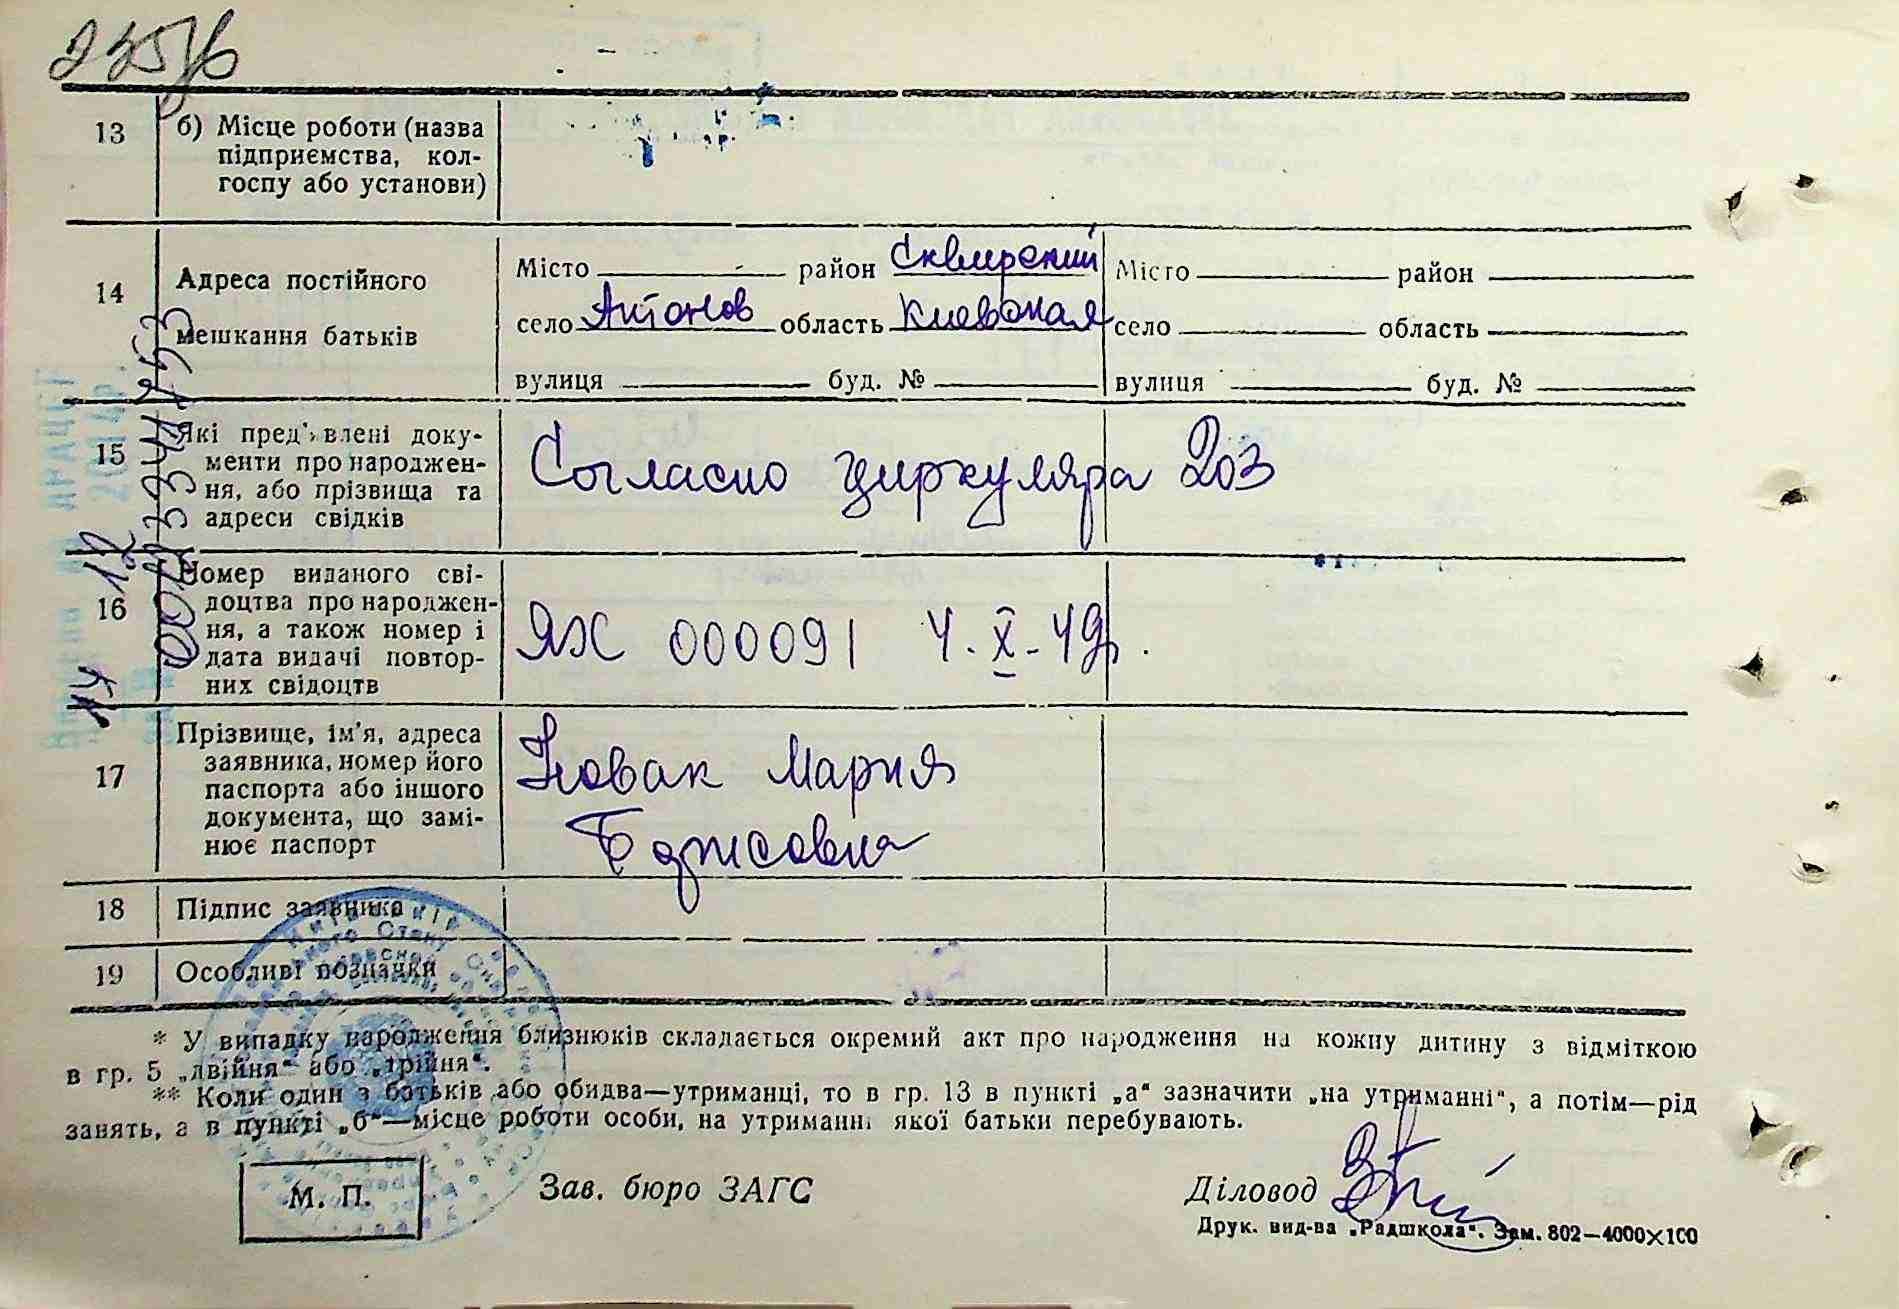 13 б) Місце роботи (назва
підприємства, кол-
госпу або установи)
14 Адреса постійного
мешкання батьків
Місто район Сквирский
село Антонов область Киевская
вулиця буд. №
Місто район
село область
вулиця буд. №
15 Які пред'явлені доку-
менти про народжен-
ня, або прізвища та
адреси свідків
Согласно циркуляра 203
16 Номер виданого сві-
доцтва про народжен-
ня, а також номер і
дата видачі повтор-
них свідоцтв
ЯХ 000091 4.X-49р.
17 Прізвище, ім'я, адреса
заявника, номер його
паспорта або іншого
документа, що замі-
нює паспорт
Новак Мария
18 Підпис заявника
19 Особливі позначки
* У випадку народження близнюків складається окремий акт про народження на кожну дитину з відміткою
в гр. 5 „двійня“ або „трійня“.
** Коли один з батьків або обидва—утриманці, то в гр. 13 в пункті „а“ зазначити „на утриманні“, а потім—рід
занять, а в пункті „б“—місце роботи особи, на утриманні якої батьки перебувають.
М. П. Зав. бюро ЗАГС Діловод
Друк. вид-ва „Радшкола“. Зам. 802—4000×100